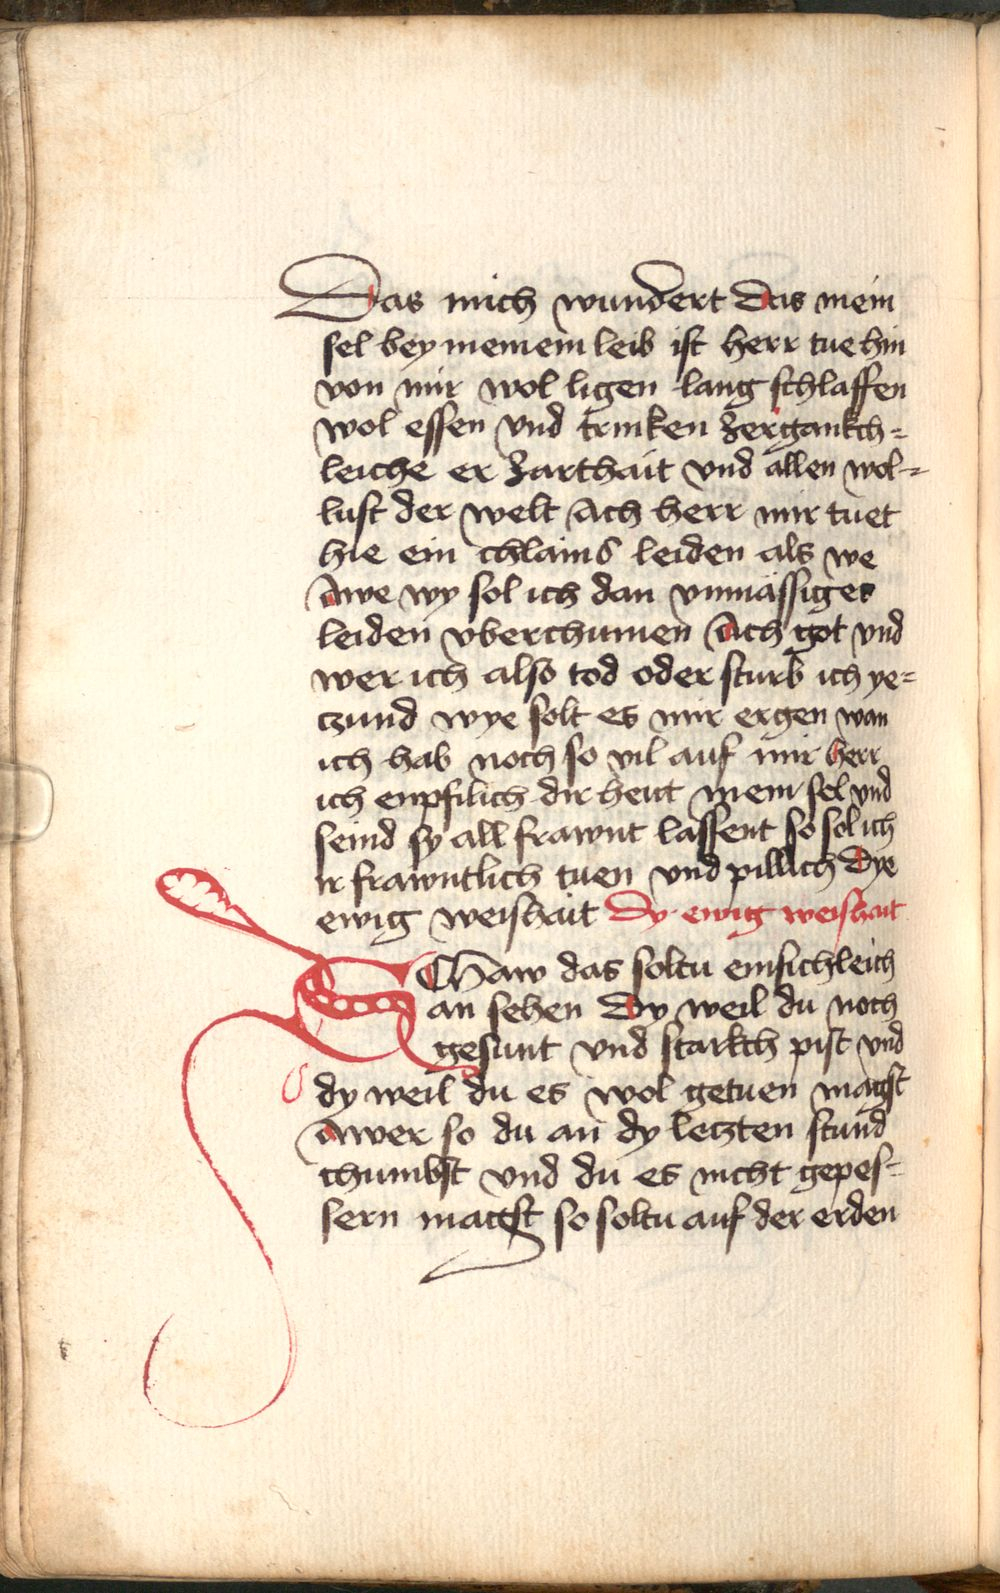 Das mich wundert das mein
sel bey meinem leib ist herr tue hin
von mir wol ligen lang schlaffen
wol essen vnd trinken zergankch=
leiche er zarthait vnd allen wol=
lust der welt Ach herr mir tuet
hie ein chlains leiden als we
Awe wy sol ich dan vnmässiges
leiden vberchumen Ach got vnd
wer ich also tod oder sturb ich ye=
czund wye solt es mir ergen wan
ich hab noch so vil auf mir herr
ich enpfilich dir heut mein sel vnd
seind sy all frawnt lassent so sol ich
ir frawntlich tuen vnd pillich Dye
ewig weishait Dy ewig weishait
SChaw das soltu einsichleich
an sehen Dy weil du noch
gesunt vnd starkch pist vnd
dy weil du es wol getuen magst
Awer so du an dy letzten stund
chumbst vnd du es nicht gepes=
sern magst so soltu auf der erden